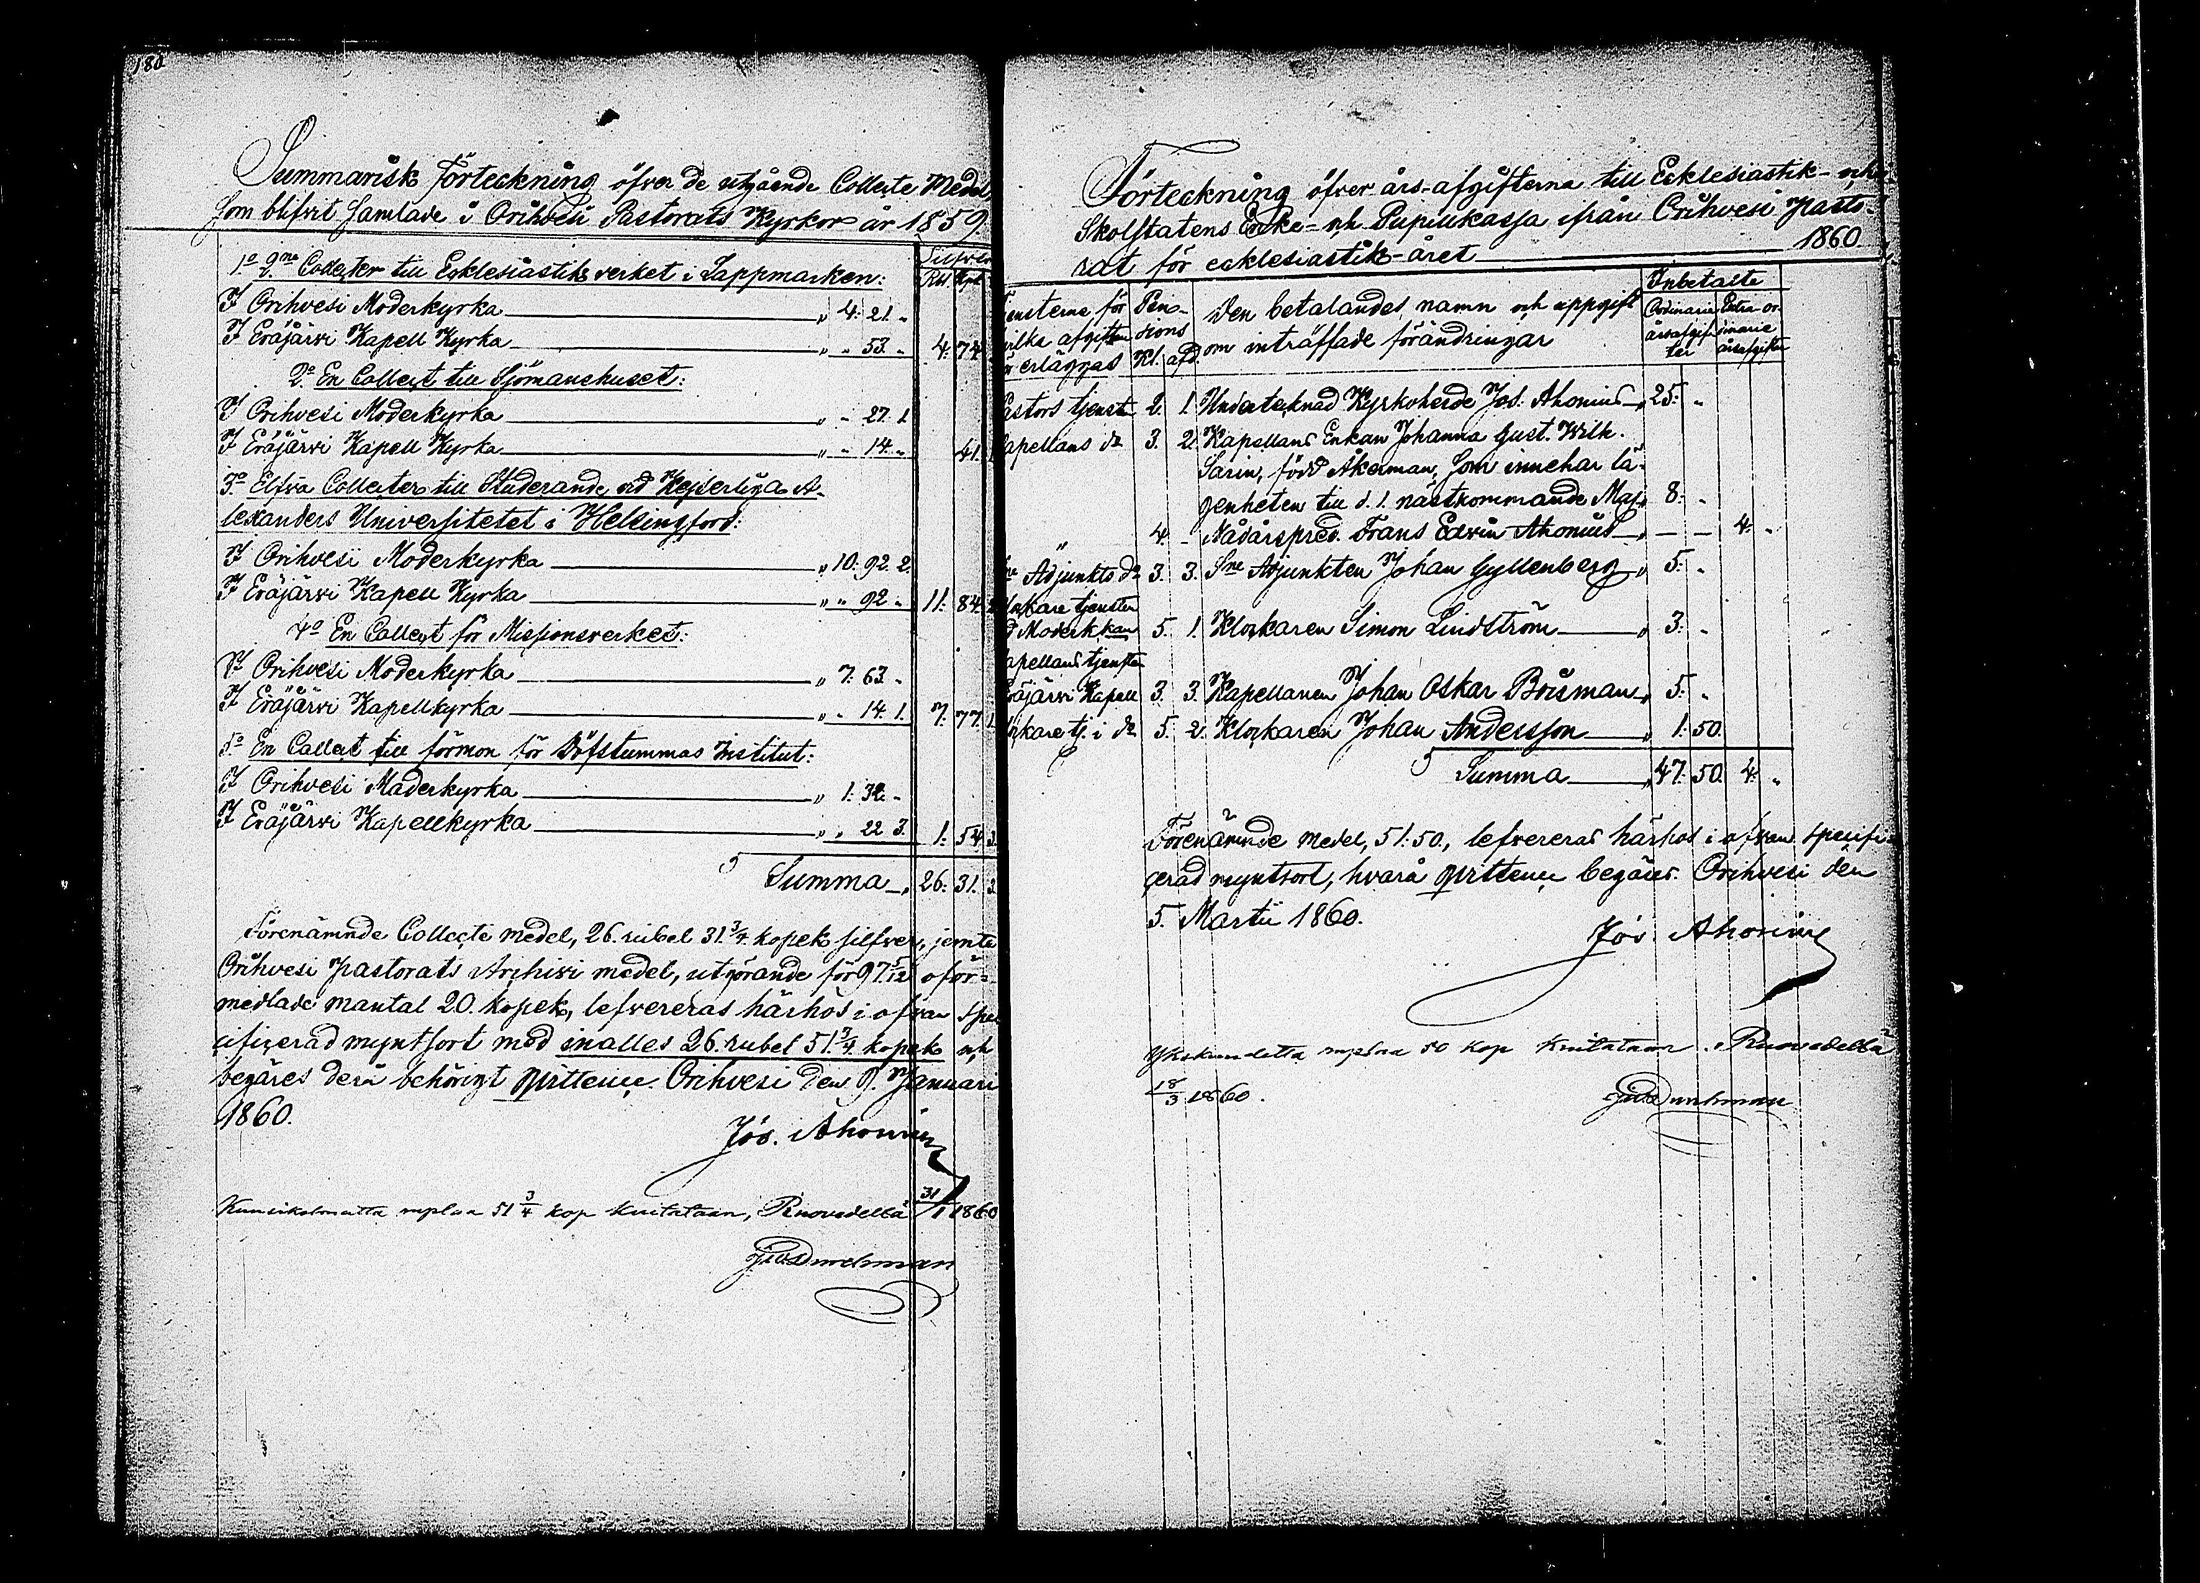 180
Summarisk Förteckning öfver de utgående Collecte Medel,
som blifvit samlade i Orihvesi Pastorats Kyrkor år 1859.
Silfver
Rbl. Kpk.
1o 2ne Collecter till Ecklesiastik verket i Lappmarken:
I Orihvesi Moderkyrka „ 4. 21. „
I Eräjärvi Kapell Kyrka „ „ 53. „ 4. 74.
2o En Collect till Sjömanshuset:
I Orihvesi Moderkyrka „ „ 27. 1.
I Eräjärvi Kapell Kyrka „ „ 14. „ 41. 1
3o Elfva Collecter till Studerande vid Kejserliga A-
lexanders Universitetet i Helsingfors:
I Orihvesi Moderkyrka „ 10. 92. 2.
I Eräjärvi Kapell Kyrka „ „ 92 „ 11. 84. 2
4o En Collect för Missionsverket:
I Orihvesi Moderkyrka „ 7. 63. „
I Eräjärvi Kapellkyrka „ „ 14. 1. 7. 77. 1
5o En Collect till förmon för Döfstummas Institut:
I Orihvesi Moderkyrka „ 1. 32. „
I Eräjärvi Kapellkyrka „ „ 22 3. 1. 54. 3
Summa „ 26. 31. 3
Förenämnde Collecte medel, 26. rubel 31. 3/4. kopek silfver, jemte
Orihvesi pastorats Archivi medel, utgörande för 97 5/12 oför-
medlade mantal 20. kopek, lefvereras härhos i ofvan spe
cificerad myntsort med inalles 26. rubel 51. 3/4. kopek och
begäres derå behörigt qvittence. Orihvesi den 9. Januari
1860.
Jos. Ahonius
Kuusikolmatta ruplaa 51 3/4 kop kuitataan, Ruovedellä 31/1 1860
Durchman
Förteckning öfver års-afgifterna till Ecklesiastik- och
Skolstatens Enke- och Pupillkassa ifrån Orihvesi pasto-
rat för ecklesiastik-året 1860
Inbetalte
ensterne för Pen- Den betalandes namn och uppgift Ordinarie Extra or-
vilka afgiften sions om inträffade förändringar årsafgif- dinarie
erläggas Kl. afd. ter årsafgifter
Pastors tjenst 2. 1. Undertecknad Kyrkoherde Jos. Ahonius „ 25. „
apellans do 3. 2. Kapellans Enkan Johanna Gust. Wilh.
Sarin, född Åkerman, som innehar lä-
genheten till d. 1. nästkommande Maj „ 8. „
„ 4. - Nådårspred. Frans Edvin Ahonius „ — — 4. „
ne Adjunkts do 3. 3. Sne Adjunkten Johan Gyllenberg „ 5. „
lockare tjensten
d Moderk.kan 5. 1. Klockaren Simon Lindström „ 3. „
apellans tjensten
Eräjärvi Kapell 3. 3. Kapellanen Johan Oskar Boisman „ 5. „
lockare tj. i do 5. 2. Klockaren Johan Andersson „ 1. 50.
Summa „ 47. 50. 4. „
Förenämnde medel, 51. 50., lefvereras härhos i ofvan specifi-
cerad myntsort, hvarå qvittence begäres. Orihvesi den
5. Martii 1860.
Jos. Ahonius
Yksikuudetta ruplaa 50 kop kuitataan. Ruovedellä
18/3 1860.
Durchman